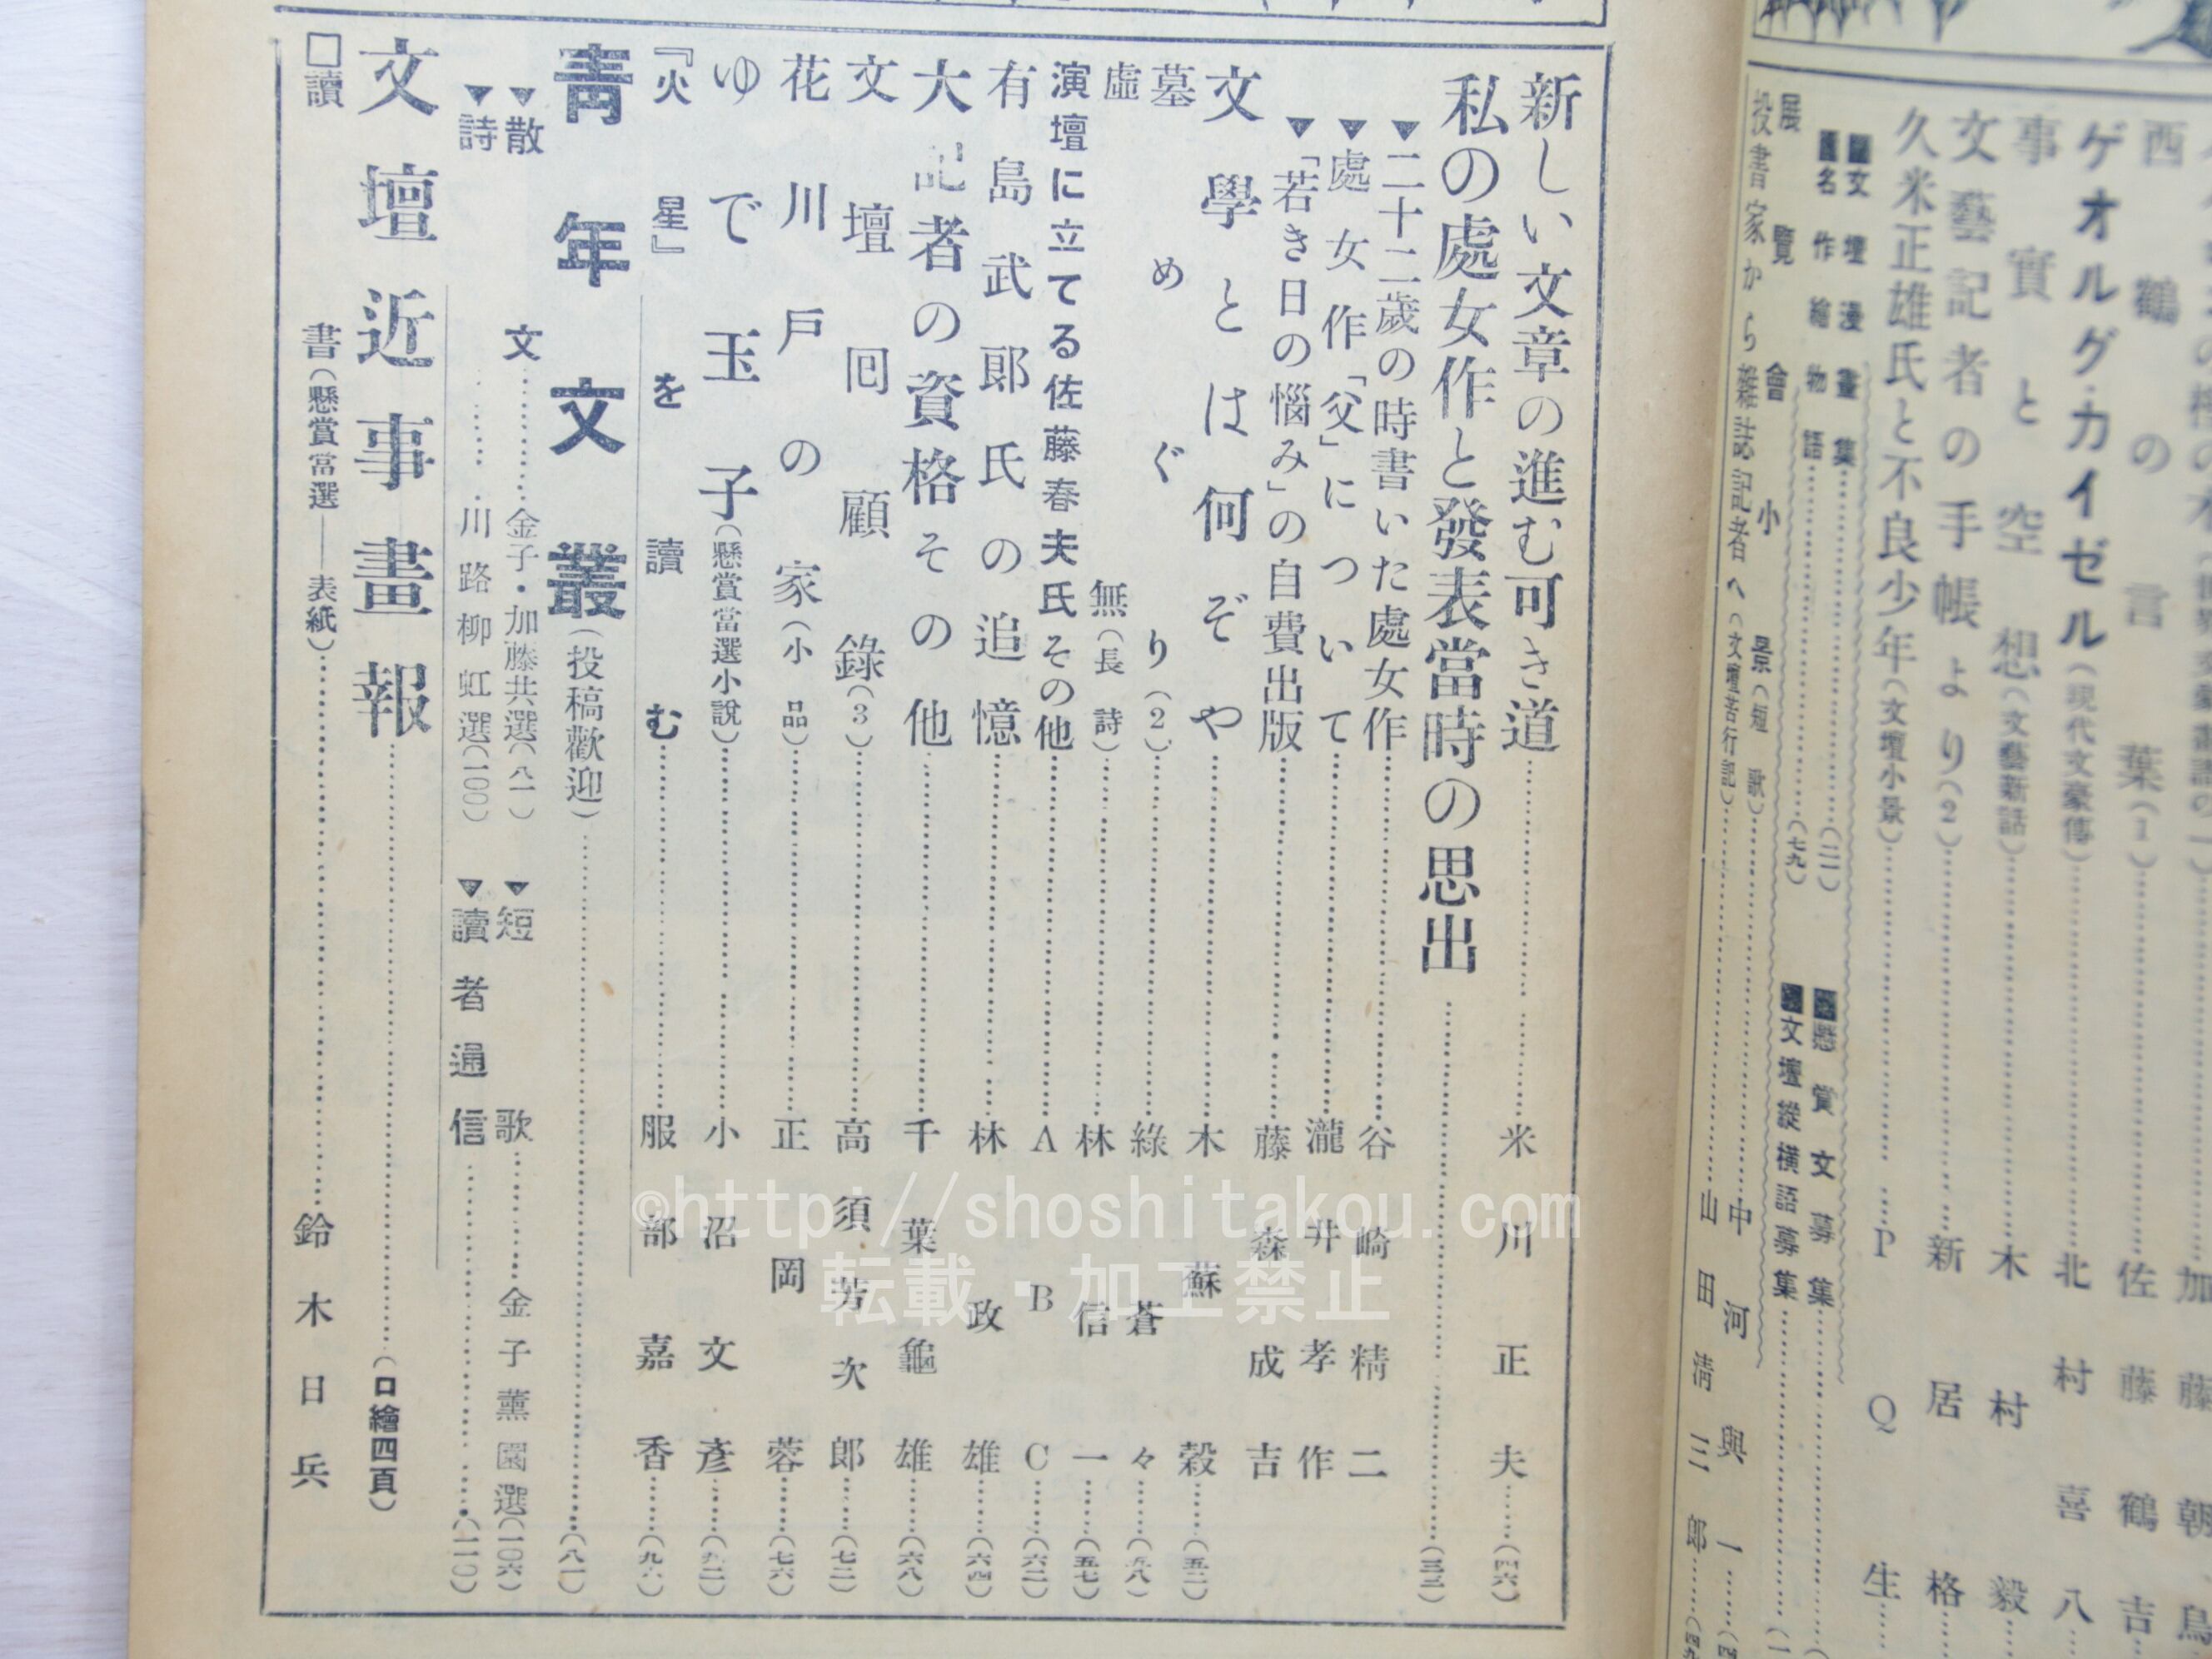 西鶴の言葉(1)……佐藤鶴吉
ゲオルグ・カイゼル(現代文豪傳)……北村喜八
事實と空想(文藝新話)……木村毅
文藝記者の手帳より(2)……新居格
久米正雄氏と不良少年(文壇小景)……PQ生
文壇漫畫集……(二一)
名作繪物語……(七九)
懸賞文募集
文壇縱橫語募集
展覽會小景(短歌)……中河與一
投書家から雜誌記者へ(文壇苦行記)……山田淸三郎
新しい文章の進む可き道……米川正夫……(四六)
私の處女作と發表當時の思出……(三三)
▼二十二歲の時書いた處女作……谷崎精二
▼處女作「父」について……瀧井孝作
▼「若き日の惱み」の自費出版……藤森成吉
文學とは何ぞや……木蘇穀……(五二)
墓めぐり(2)……綠蒼々……(五八)
虛無(長詩)……林信一……(五七)
演壇に立てる佐藤春夫氏その他……ABC……(六二)
有島武郞氏の追憶……林政雄……(六四)
大記者の資格その他……千葉龜雄……(六八)
文壇回顧錄(3)……高須芳次郎……(七二)
花川戶の家(小品)……正岡蓉……(七六)
ゆで玉子(懸賞當選小說)……小沼文彥……(九二)
『火星』を讀む……服部嘉香……(九八)
靑年文叢(投稿歡迎)……(八一)
▼散文……金子・加藤共選(八一)
▼短歌……金子薰園選(一〇六)
▼詩……川路柳虹選(一〇〇)
▼讀者通信……(一一〇)
文壇近事畫報……(口繪四頁)
□讀書(懸賞當選——表紙)……鈴木日兵
©http://shoshitakou.com
転載・加工禁止